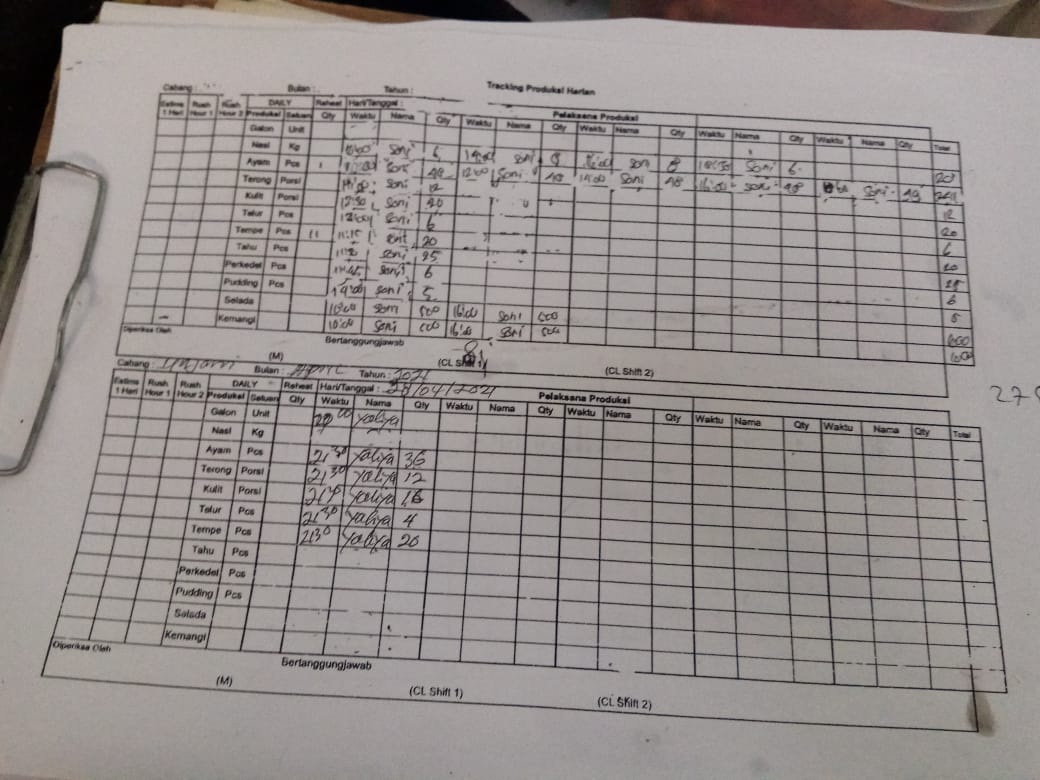 Tracking Produksi Harian
Cabang : Bulan : Tahun :
Estima 1 Hari Rush Hour 1 Rush Hour 2 DAILY Produksi Satuan Reheat Qty Hari/Tanggal : Pelaksana Produksi
Waktu Nama Qty Waktu Nama Qty Waktu Nama Qty Waktu Nama Qty Waktu Nama Qty Total
Galon Unit
Nasi Kg Soni 6 Soni 8 Soni 8 Soni 6
Ayam Pcs Soni 48 12:00 Soni 48 14:00 Soni 48 16:00 Soni 48 Soni 49
Terong Porsi Soni 12 12
Kulit Porsi 12:30 Soni 20 20
Telur Pcs Soni 6 6
Tempe Pcs 11:15 Soni 20 20
Tahu Pcs Soni 25 25
Perkedel Pcs Soni 6 6
Pudding Pcs 14:00 Soni 5 5
Selada 10:00 Soni 500 16:00 Soni 500
Kemangi 10:00 Soni 500 16:00 Soni 500
Diperiksa Oleh Bertanggungjawab
(M) (CL Shift 1) (CL Shift 2)
Cabang : Bulan : April Tahun : 2021
Estima 1 Hari Rush Hour 1 Rush Hour 2 DAILY Produksi Satuan Reheat Qty Hari/Tanggal : 28/04/2021 Pelaksana Produksi
Waktu Nama Qty Waktu Nama Qty Waktu Nama Qty Waktu Nama Qty Waktu Nama Qty Total
Galon Unit Yahya
Nasi Kg
Ayam Pcs 21 30 Yahya 36
Terong Porsi 21 30 Yahya 12
Kulit Porsi 21 30 Yahya 16
Telur Pcs 21 30 Yahya 4
Tempe Pcs 21 30 Yahya 20
Tahu Pcs
Perkedel Pcs
Pudding Pcs
Selada
Kemangi
Diperiksa Oleh Bertanggungjawab
(M) (CL Shift 1) (CL Shift 2)